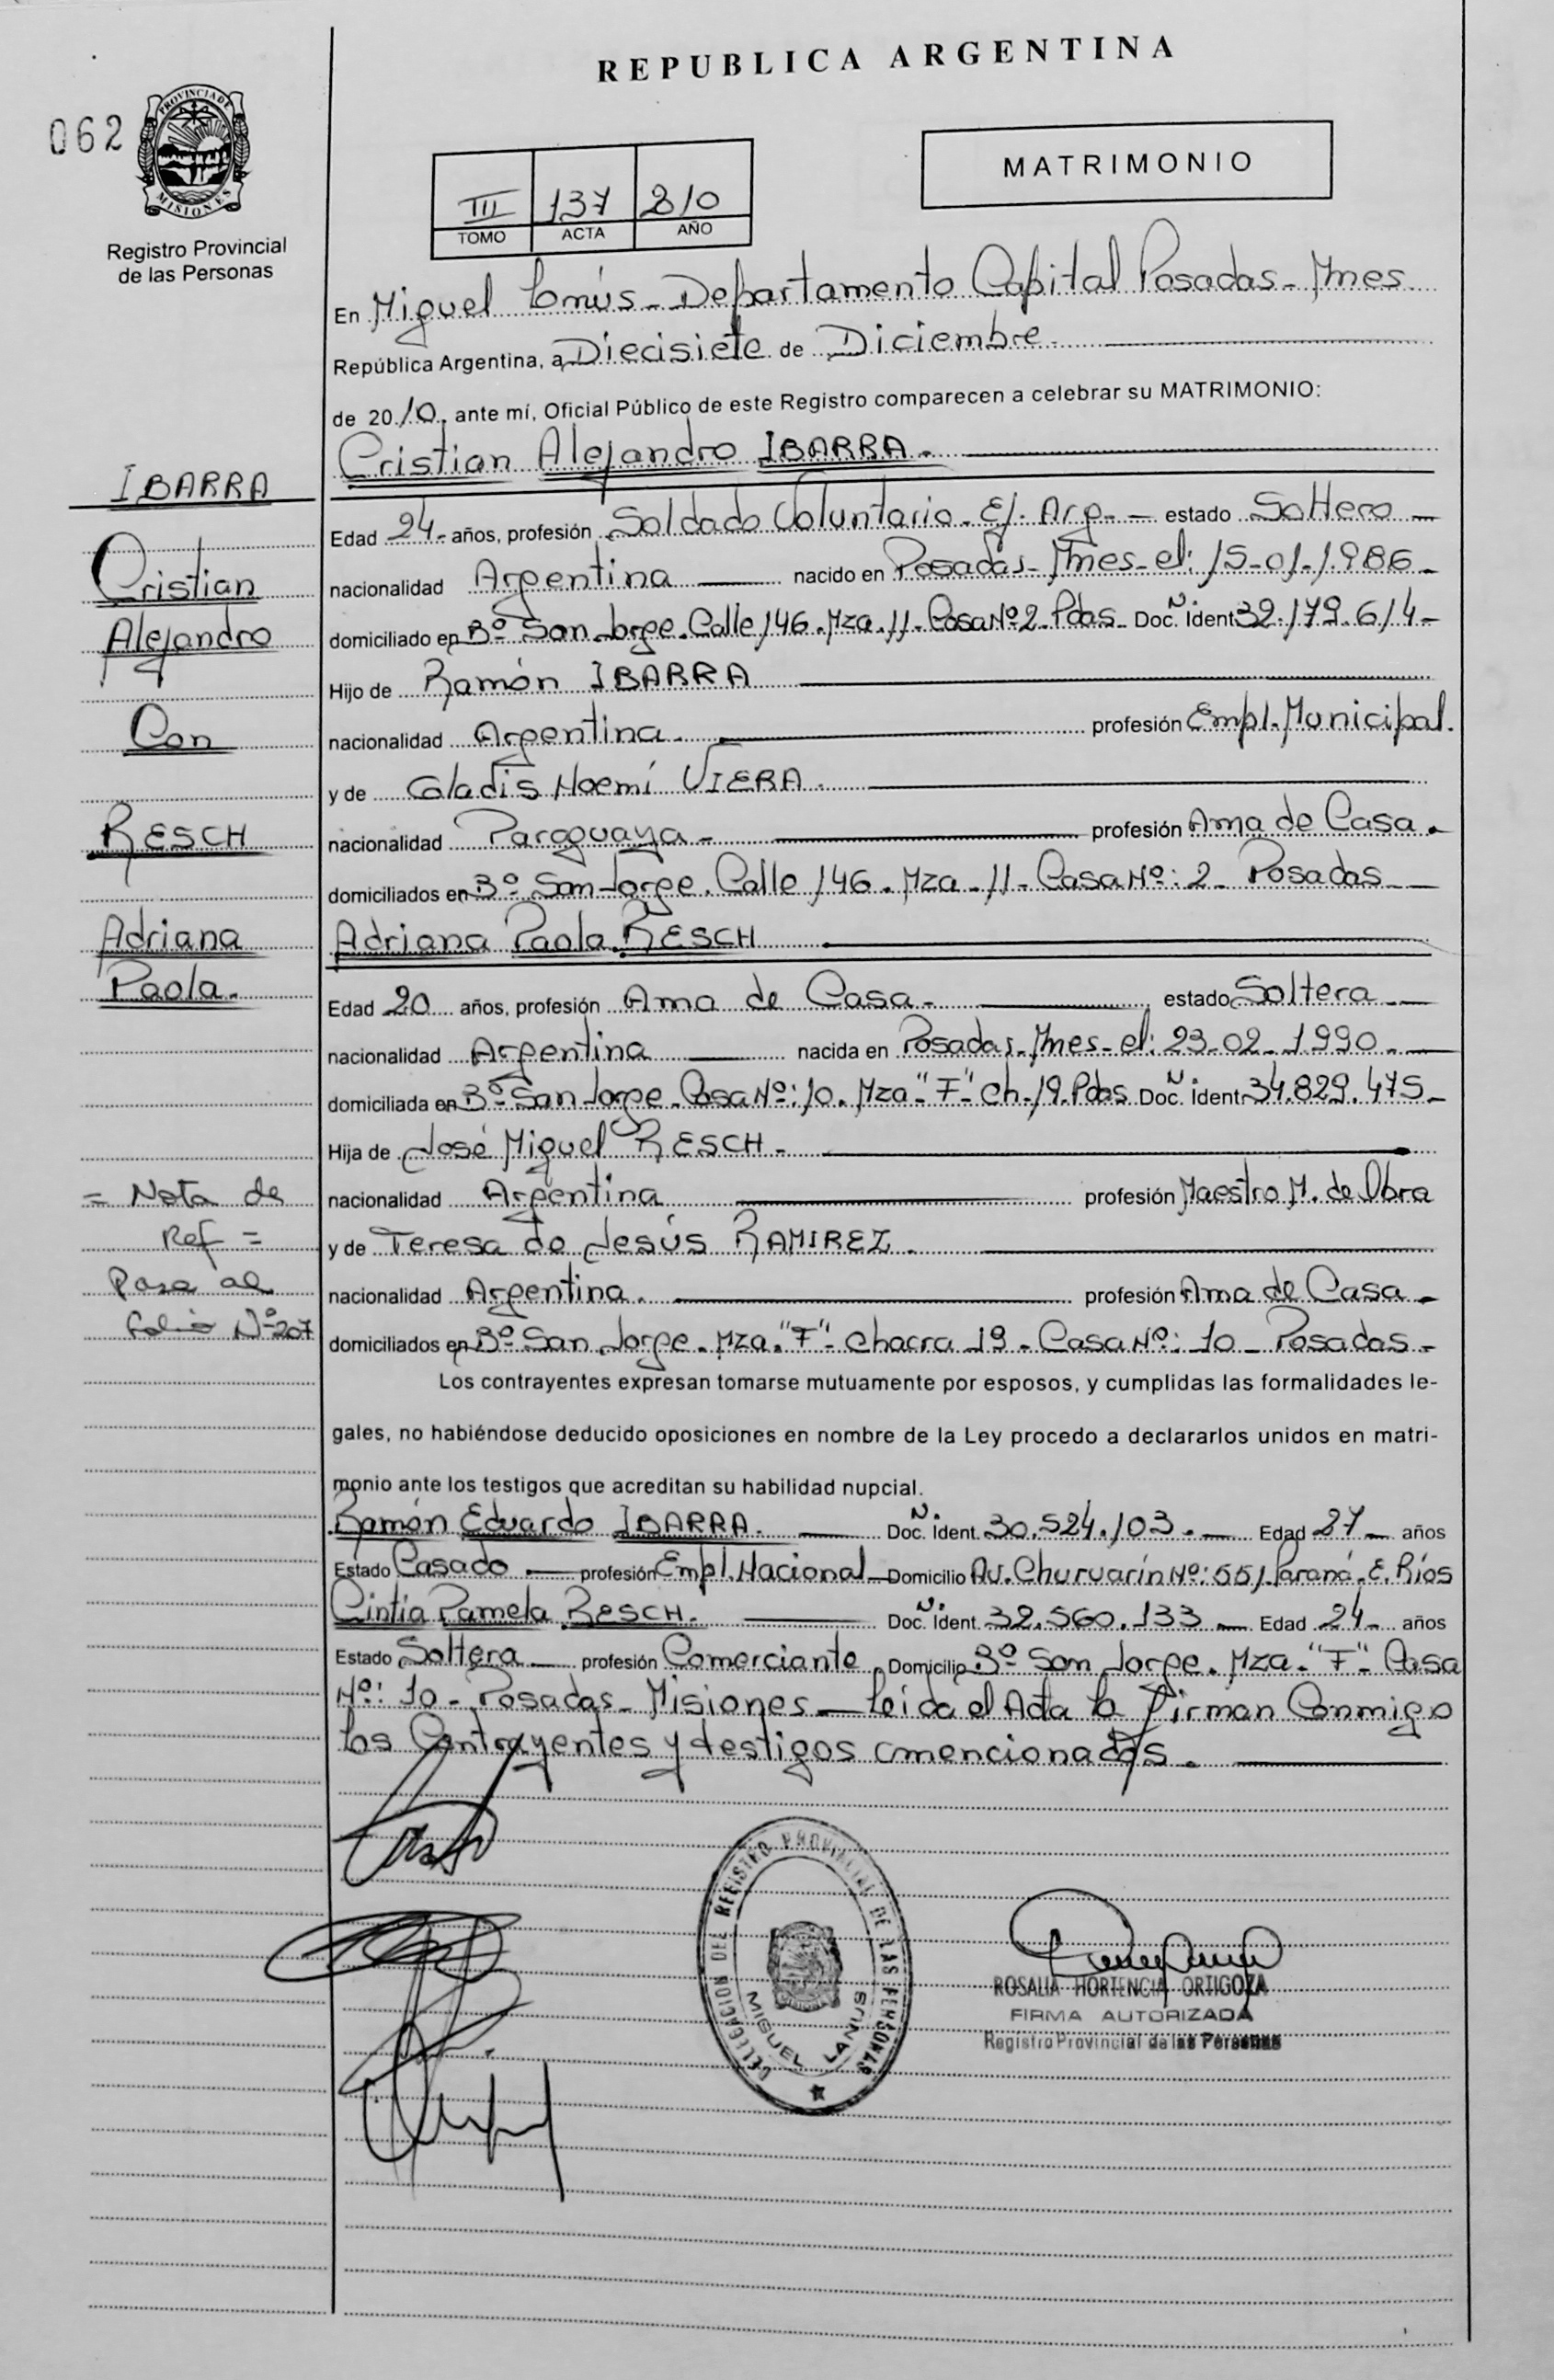 REPUBLICA ARGENTINA
062
PROVINCIA DE
MISIONES
Registro Provincial
de las Personas
MATRIMONIO
III 137 2/0
TOMO ACTA AÑO
En Miguel Lanús - Departamento Capital Posadas - Mnes
República Argentina, a Diecisiete de Diciembre
de 2010, ante mí, Oficial Público de este Registro comparecen a celebrar su MATRIMONIO:
Cristian Alejandro IBARRA.
Edad 24 - años, profesión Soldado Voluntario - Ej. Arg. - estado Soltero -
nacionalidad Argentina nacido en Posadas - Mnes - el: 15-01-1986 -
domiciliado en Bº San Jorge. Calle 146. Mza. 11 - Casa Nº 2 Pdas - Doc. Ñ. Ident 32.179.614 -
Hijo de Ramón IBARRA
nacionalidad Argentina. profesión Empl. Municipal.
y de Gladis Noemí VIERA.
nacionalidad Paraguaya - profesión Ama de Casa.
domiciliados en Bº San Jorge. Calle 146. Mza - 11 - Casa Nº: 2 - Posadas
Adriana Paola RESCH
Edad 20 años, profesión Ama de Casa - estado Soltera -
nacionalidad Argentina nacida en Posadas - Mnes - el: 23-02-1990 -
domiciliada en Bº San Jorge - Casa Nº: 10. Mza "F" Ch. 19. Pdas Doc. Ñ. Ident 34.829.475 -
Hija de José Miguel RESCH -
nacionalidad Argentina profesión Maestro M. de Obra
y de Teresa de Jesús RAMIREZ.
nacionalidad Argentina. profesión Ama de Casa -
domiciliados en Bº San Jorge - Mza. "F" - Chacra 19 - Casa Nº: 10 - Posadas -
Los contrayentes expresan tomarse mutuamente por esposos, y cumplidas las formalidades le-
gales, no habiéndose deducido oposiciones en nombre de la Ley procedo a declararlos unidos en matri-
monio ante los testigos que acreditan su habilidad nupcial.
Ramón Eduardo IBARRA. Doc. Ñ. Ident. 30.524.103. Edad 27 - años
Estado Casado - profesión Empl. Nacional - Domicilio Av. Churruarín Nº: 551. Paraná - E. Ríos
Cintia Pamela RESCH. Doc. Ñ. Ident. 32.560.133 - Edad 24 - años
Estado Soltera - profesión Comerciante, Domicilio Bº San Jorge. Mza. "F" Casa
Nº: 10 - Posadas - Misiones - Leída el Acta la Firman Conmigo
los Contrayentes y testigos mencionados.
IBARRA
Cristian
Alejandro
Con
RESCH
Adriana
Paola.
= Nota de
Ref =
Pasa al
folio Nº 207
DELEGACION DEL REGISTRO PROVINCIAL DE LAS PERSONAS
MIGUEL LANUS
ROSALIA HORTENCIA ORTIGOZA
FIRMA AUTORIZADA
Registro Provincial de las Personas